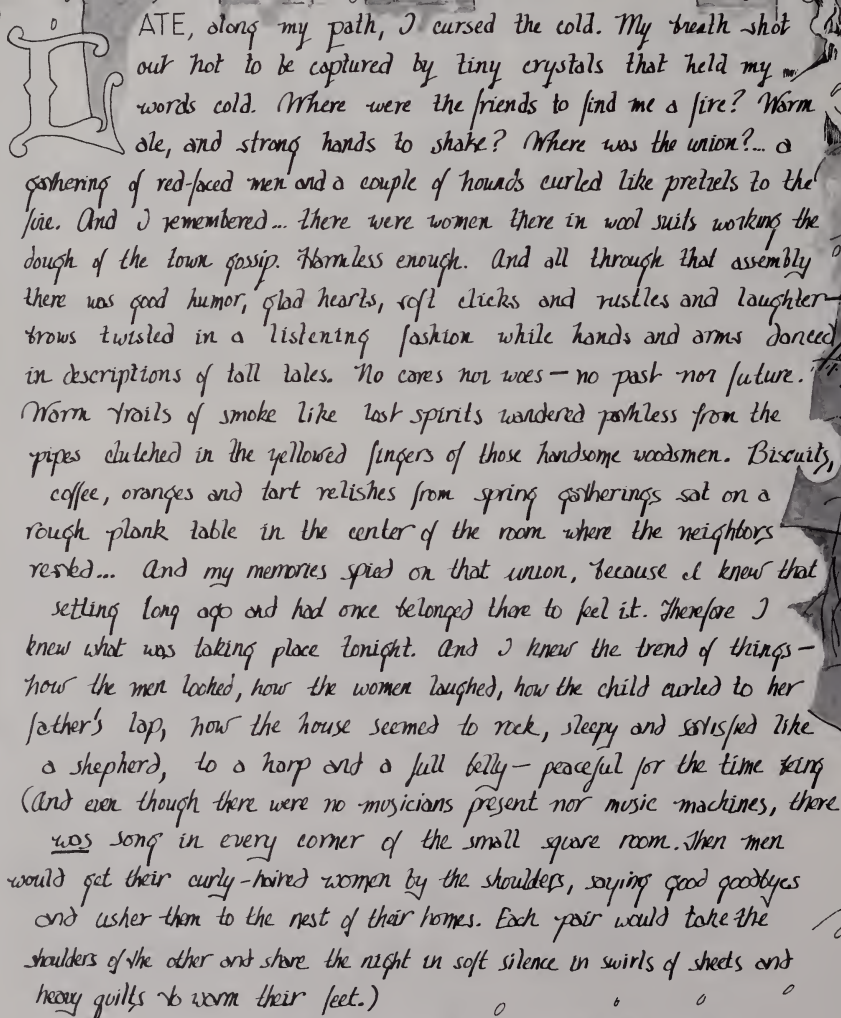 LATE, along my path, I cursed the cold. My breath shot
out hot to be captured by tiny crystals that held my
words cold. Where were the friends to find me a fire? Warm
ale, and strong hands to shake? Where was the union?... a
gathering of red-faced men and a couple of hounds curled like pretzels to the
fire. And I remembered... there were women there in wool suits working the
dough of the town gossip. Harmless enough. And all through that assembly
there was good humor, glad hearts, soft clicks and rustles and laughter-
brows twisted in a listening fashion while hands and arms danced
in descriptions of tall tales. No cares nor woes - no past nor future.
Warm trails of smoke like lost spirits wandered pathless from the
pipes clutched in the yellowed fingers of those handsome woodsmen. Biscuits,
coffee, oranges and tart relishes from spring gatherings sat on a
rough plank table in the center of the room where the neighbors
rested... And my memories spied on that union, because I knew that
setting long ago and had once belonged there to feel it. Therefore I
knew what was taking place tonight. And I knew the trend of things -
how the men looked, how the women laughed, how the child curled to her
father's lap, how the house seemed to rock, sleepy and satisfied like
a shepherd, to a harp and a full belly - peaceful for the time being
(And even though there were no musicians present nor music machines, there
was song in every corner of the small square room. Then men
would get their curly-haired women by the shoulders, saying good goodbyes
and usher them to the nest of their homes. Each pair would take the
shoulders of the other and share the night in soft silence in swirls of sheets and
heavy quilts to warm their feet.)